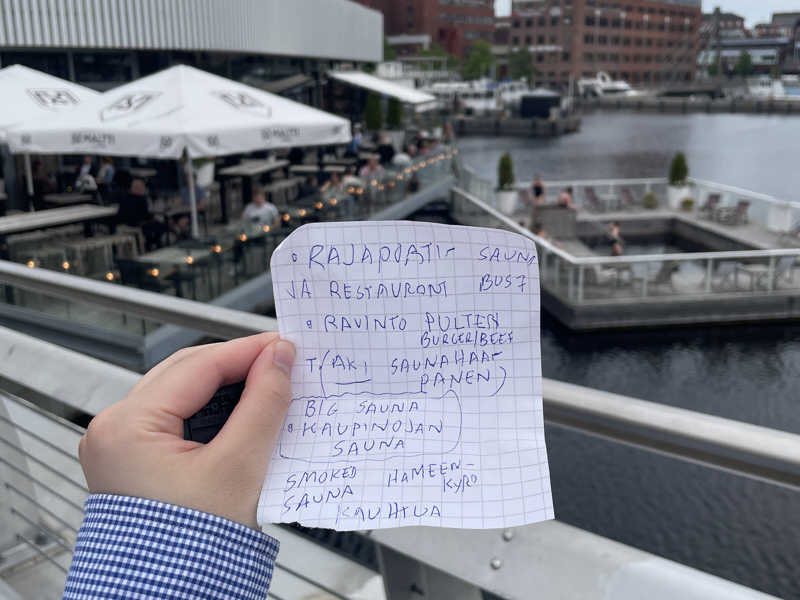 RAJAPORTI- SAUNA
JA RESTAURONT BUS 7
RAVINTO PULTERI
BURGER/BEEF
T. (AKI SAUNAHAA-
PANEN)
BIG SAUNA
KAUPINOJAN
SAUNA
SMOKED HAMEEN-
SAUNA KYRO
KAUHTUA